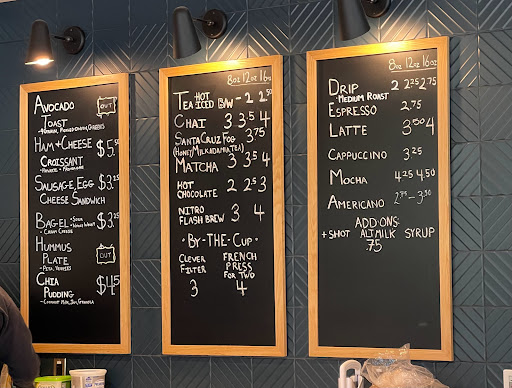 AVOCADO
TOAST OUT
HAM + CHEESE $5.50
CROISSANT
SAUSAGE, EGG $3.25
CHEESE SANDWICH
BAGEL $3.25
- CREAM CHEESE
HUMMUS
PLATE OUT
- PITA, VEGGIES
CHIA $4.5
PUDDING
8oz 12oz 16oz
TEA HOT ICED B/W - 2 2.50
CHAI 3 3.5 4
SANTA CRUZ FOG 3.75
(HONEY/MILK + DAMIA TEA)
MATCHA 3 3.5 4
HOT
CHOCOLATE 2 2.5 3
NITRO
FLASH BREW 3 4
· BY-THE-CUP ·
CLEVER
FILTER
3
FRENCH
PRESS
FOR TWO
4
8oz 12oz 16oz
DRIP 2 2.25 2.75
- MEDIUM ROAST
ESPRESSO 2.75
LATTE 3.50 4
CAPPUCCINO 3.25
MOCHA 4.25 4.50
AMERICANO 2.75 - 3.50
ADD-ONS:
+ SHOT ALT MILK SYRUP
.75